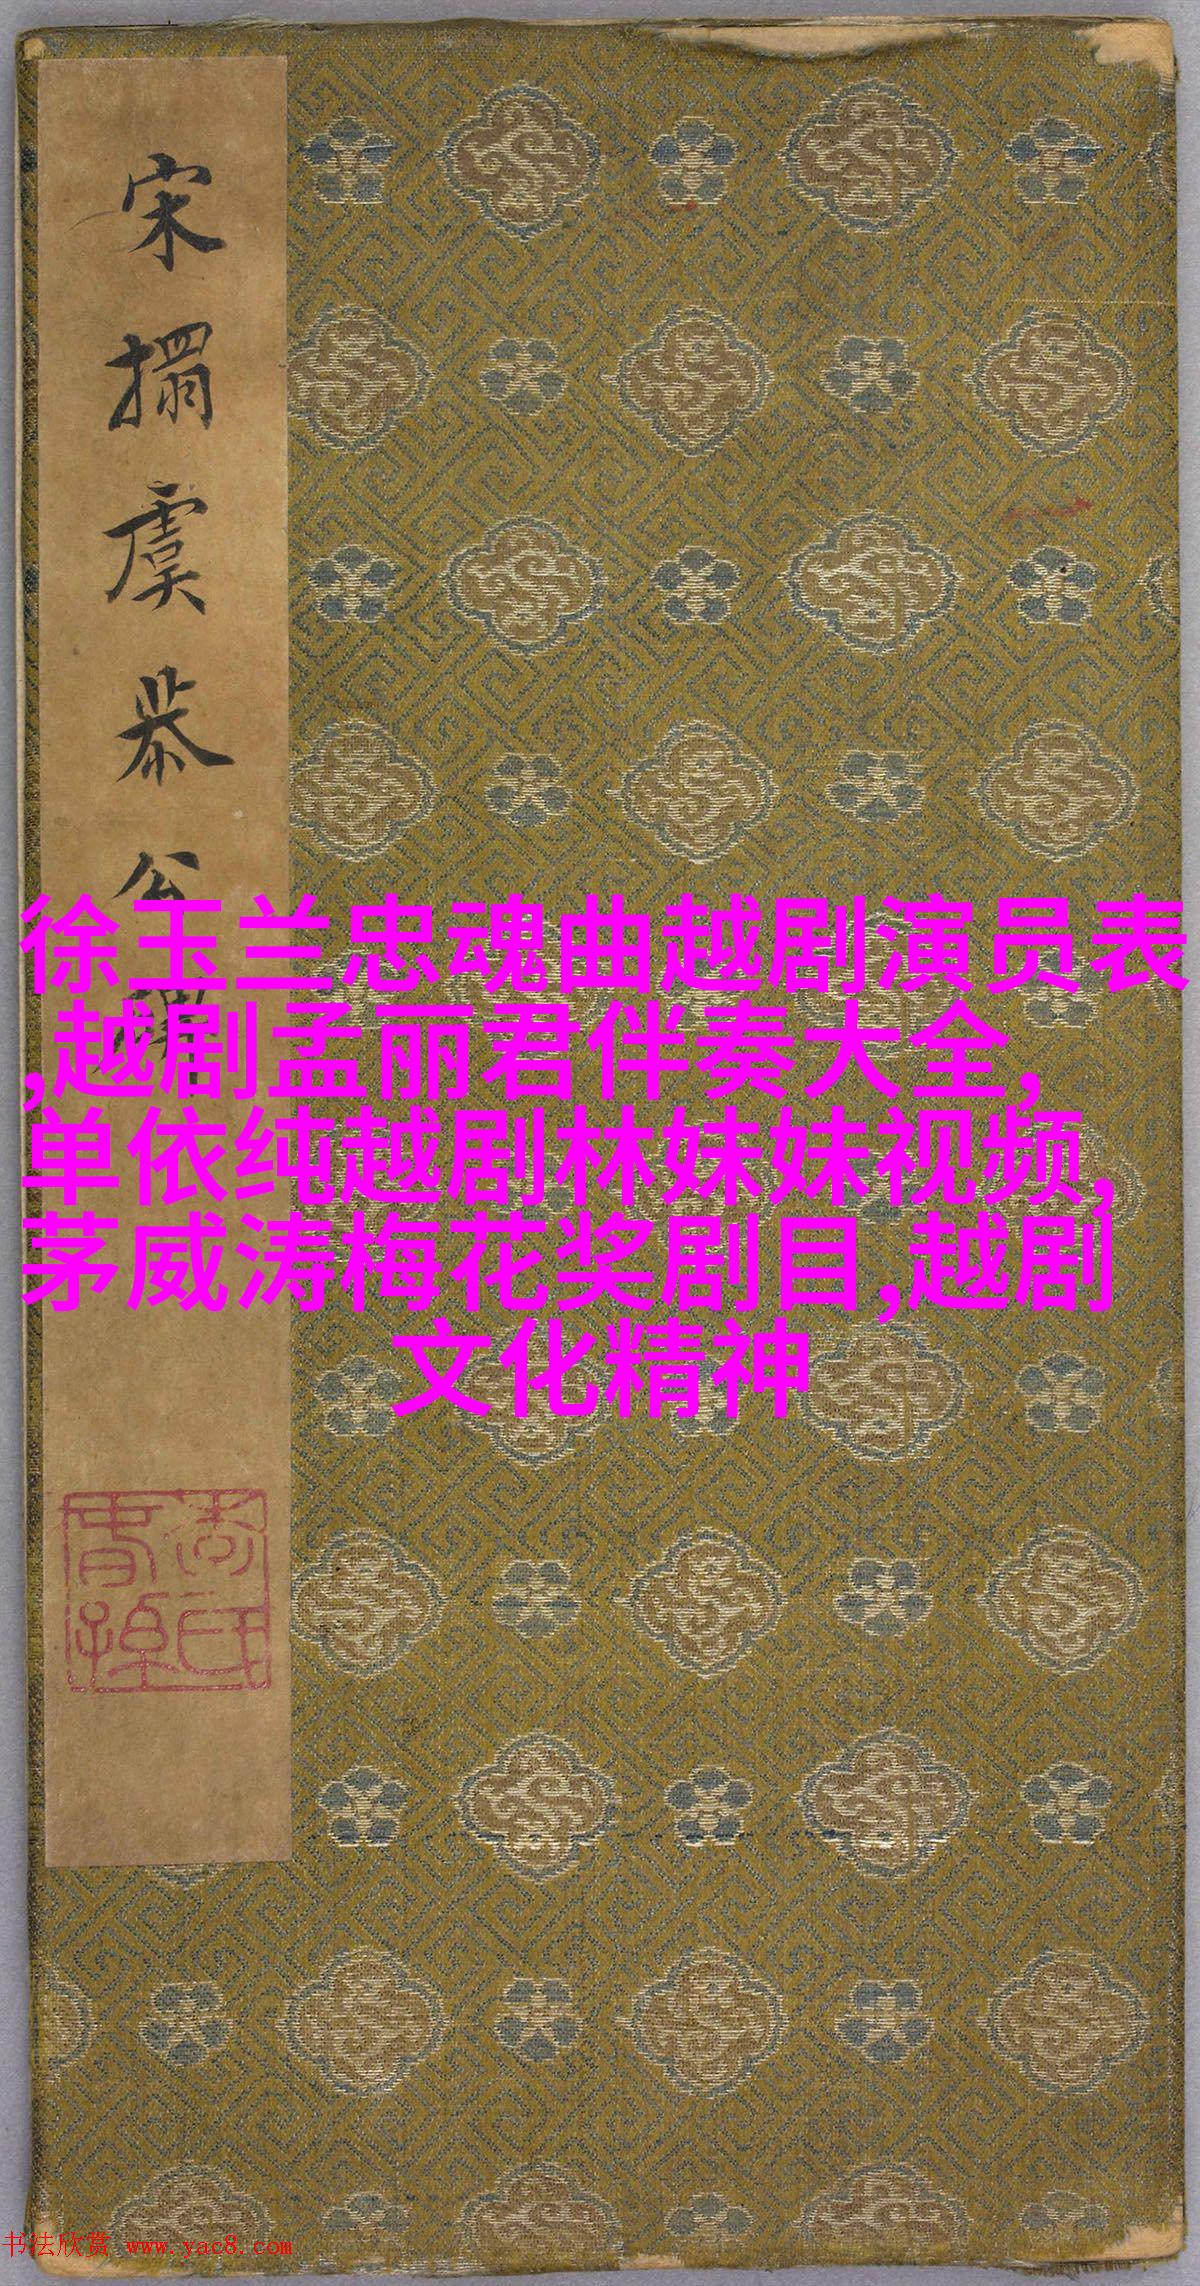 宋搨虞恭公
徐玉兰忠魂曲越剧演员表
,越剧孟丽君伴奏大全,
单依纯越剧林妹妹视频,
茅威涛梅花奖剧目,越剧
文化精神
书法欣赏 www.yac8.com